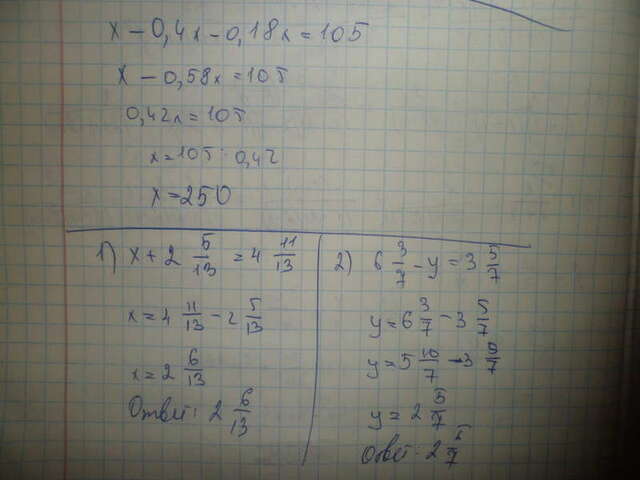 x - 0,4x - 0,18x = 105
x - 0,58x = 105
0,42x = 105
x = 105 : 0,42
x = 250
1) x + 2 5/13 = 4 11/13
x = 4 11/13 - 2 5/13
x = 2 6/13
Ответ: 2 6/13
2) 6 3/7 - y = 3 5/7
y = 6 3/7 - 3 5/7
y = 5 10/7 - 3 5/7
y = 2 5/7
Ответ: 2 5/7